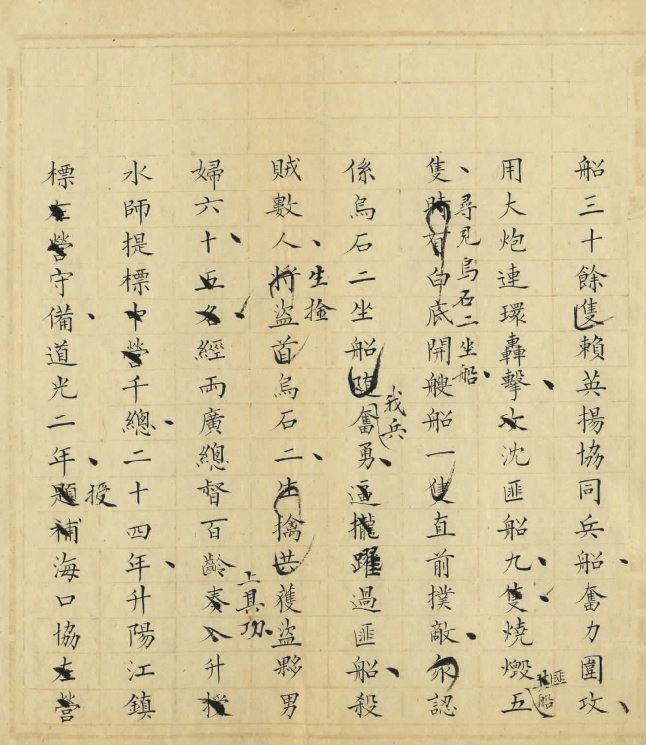 船三十餘隻賴英揚協同兵船奮力圍攻
用大炮連環轟擊沈匪船九隻燒燬五
匪船
尋見烏石二坐船
隻時有白底開艘船一隻直前撲敵衆認
我兵
係烏石二坐船隨奮勇逼攏躍過匪船殺
生擒
賊數人將盜首烏石二生擒共獲盜夥男
上其功
婦六十五名經兩廣總督百齡奏入升授
水師提標中營千總二十四年升陽江鎮
授
標左營守備道光二年題補海口協左營